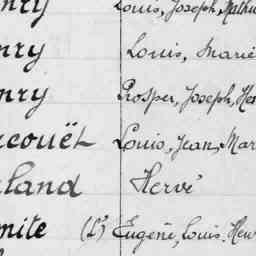 nry Louis, Joseph, Mathu
nry Louis, Marie
nry Prosper, Joseph, Hen
rcouët Louis, Jean, Mar
rland Hervé
mite (L') Eugène, Louis, Hen